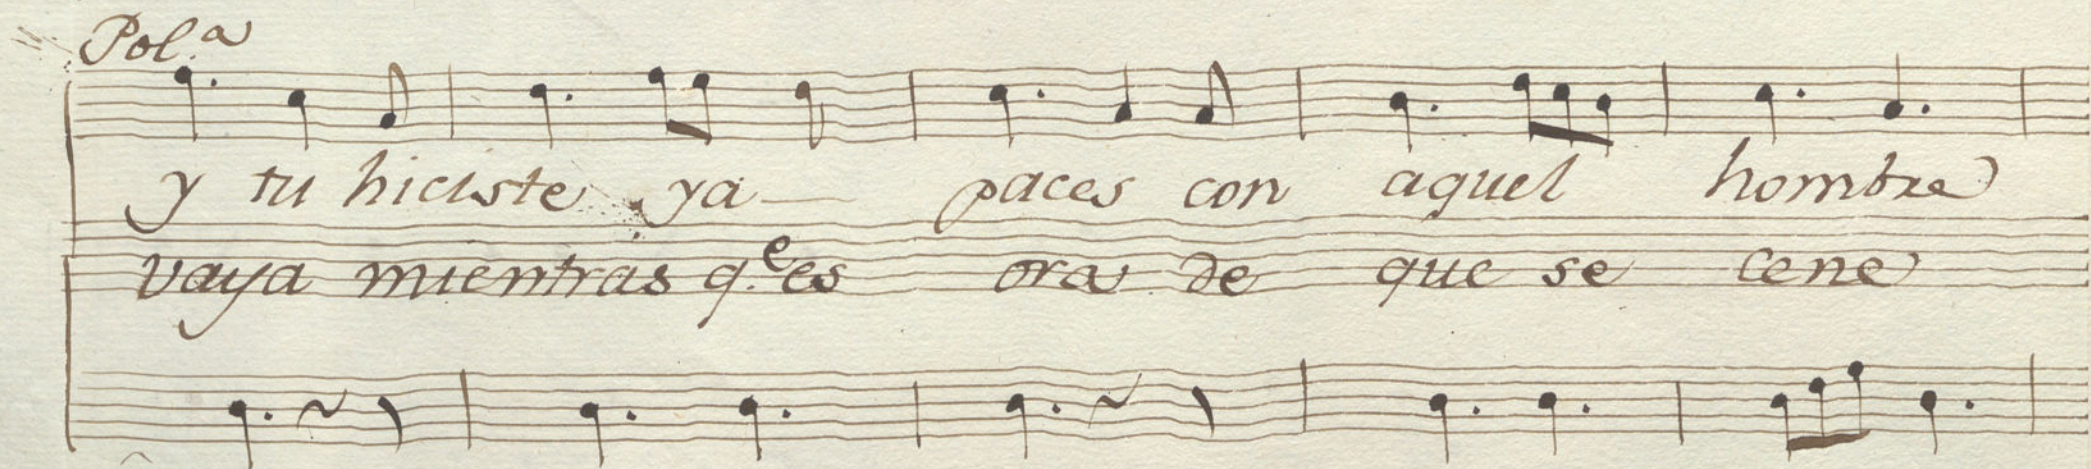 Pol.a
y tu hiciste ya paces con aquel hombre
vaya mientras q.e es ora de que se cene